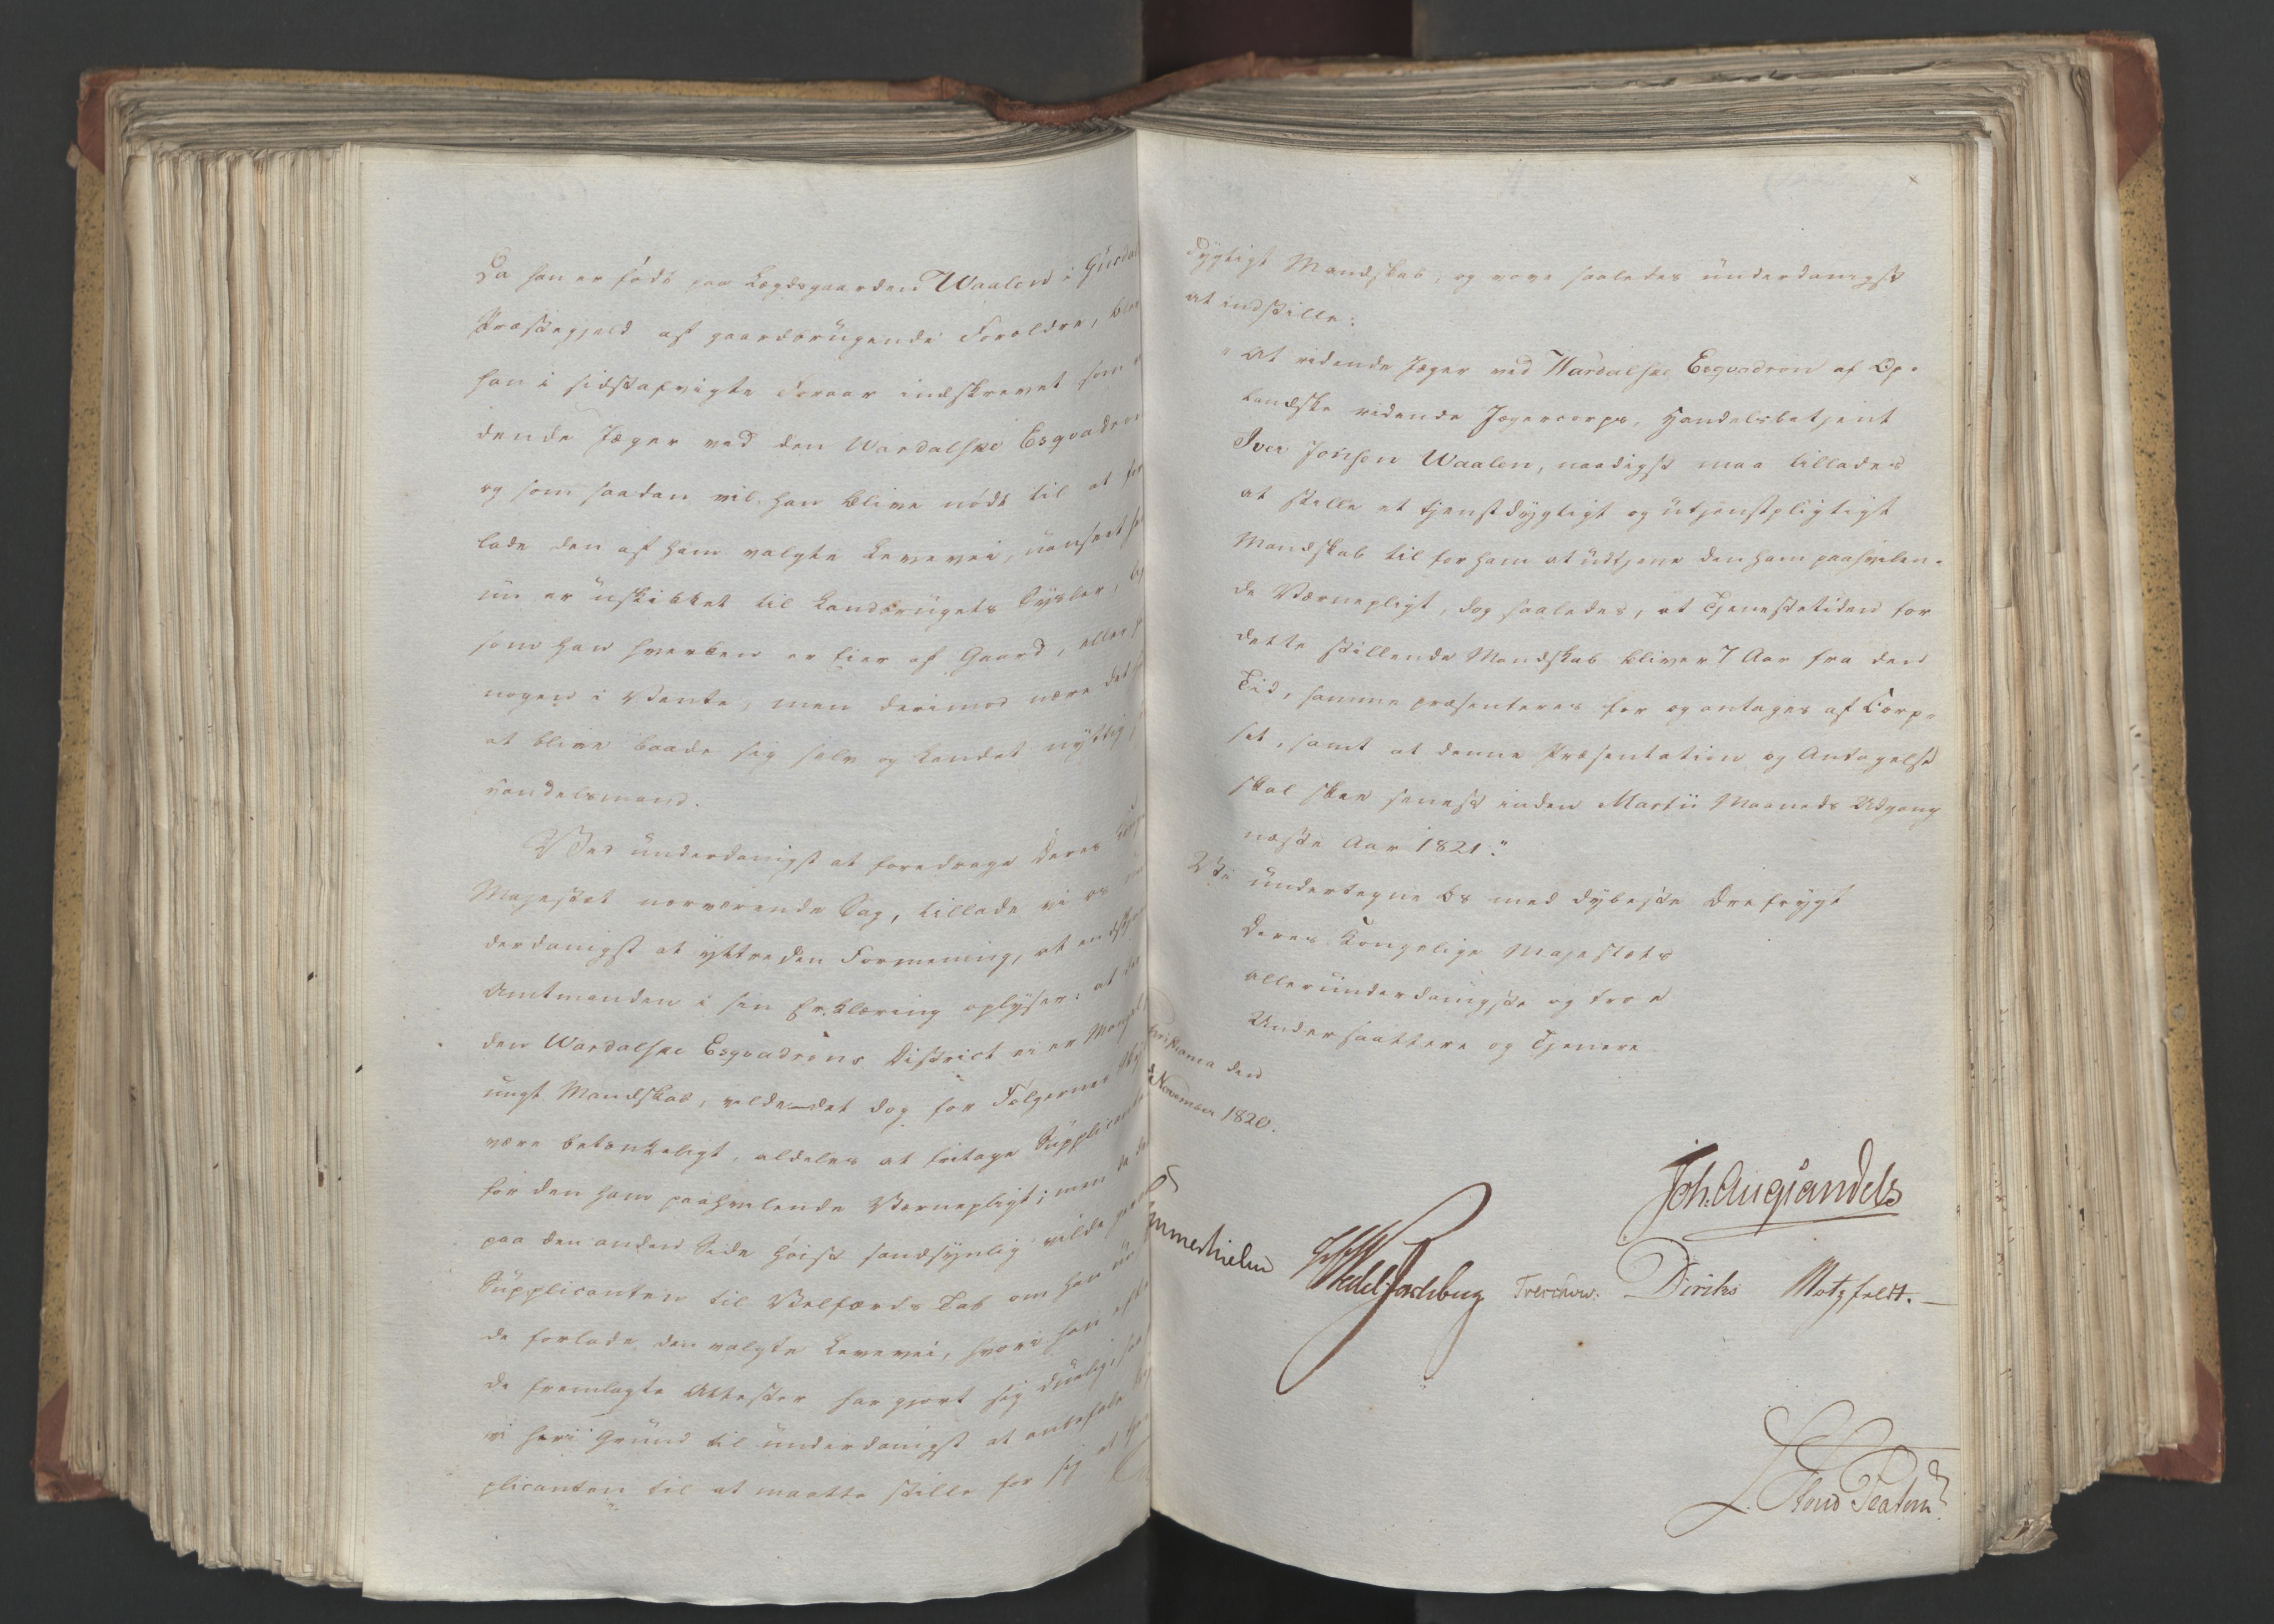 Da han er født paa Lægdsgaarden Waalen i Gusdal
Præstegjeld af gaardbrugende Forældre, blev
han i sidstafvigte Foraar indskrevet som
dende Jæger ved den Wardalske Esqvadron
og som saadan vil han blive nødt til at for
lade den af ham valgte Levevei, uanseet han
nu er uskikket til Landbrugets Sysler,
som han hverken er Eier af Gaard, eller
nogen i Vente, men derimod nære det
at blive baade sig selv og Landet nyttig
Handelsmand.
Ved underdanigst at foredrage Deres
Majestæt nærværende Sag, tillade vi os un
derdanigst at yttre den Formening, at endskjønt
Amtmanden i sin Erklæring oplyser: at
den Wardalske Esqvadrons District ei er Mangel
ungt Mandskab, vilde det dog for Følgernes
være betænkeligt, aldeles at fritage Supplicanten
for den ham paahvilende Værnepligt; men da
paa den anden Side høist sandsynlig vilde
Supplicanten til Velfærds Tab om han nu
de forlade den valgte Levevei, hvori han efter
de fremlagte Attester har gjort sig duelig,
vi heri Grund til underdanigst at anbefale
plicanten til at maatte stille for sig et
dygtigt Mandskab, og vove saaledes underdanigst
at indstille:
"At ridende Jæger ved Wardalske Esqvadron af Op-
landske ridende Jægercorps, Handelsbetjent
Iver Jonsen Waalen, naadigst maa tillades
at stille et tjenstdygtigt og utjenstpligtigt
Mandskab til for ham at udtjene den ham paahvilen-
de Værnepligt, dog saaledes, at Tjenestetiden for
dette stillende Mandskab bliver 7 Aar fra den
Tid, samme præsenteres for og antages af Corp-
set, samt at denne Præsentation og Antagelse
skal skee senest inden Martii Maaneds Udgang
næste Aar 1821."
Vi undertegne os med dybeste Ærefrygt
Deres Kongelige Majestæts
allerunderdanigste og troe
Undersaattere og Tjenere
Christiania den
November 1820.
Joh. Aug. Sandels
Sommerhielm Wedel Jarlsberg Treschow. Diriks Motzfeldt.
L. Stoud Platou